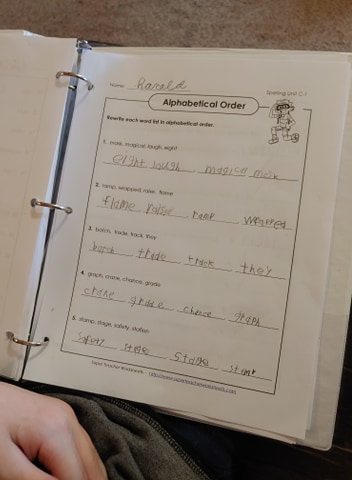 Name: Ranald
Spelling Unit C-1
Alphabetical Order
Rewrite each word list in alphabetical order.
1. mask, magical, laugh, eight
eight laugh magical mask
2. ramp, wrapped, raise, flame
flame raise ramp wrapped
3. batch, trade, track, they
batch trade track they
4. graph, crane, chance, grade
crane grade chance graph
5. stamp, stage, safety, station
safety stage stamp
Super Teacher Worksheets - http://www.superteacherworksheets.com